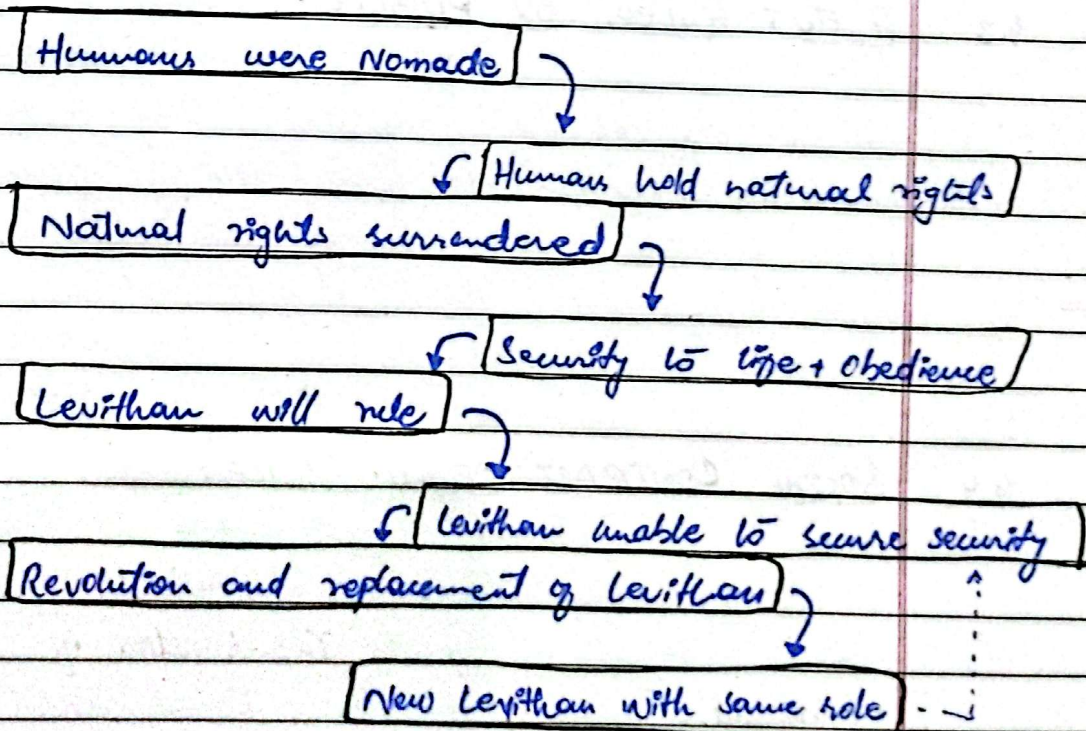 Humans were Nomade
Humans hold natural rights
Natural rights surrendered
Security to life + obedience
Levithan will rule
Levithan unable to secure security
Revolution and replacement of levithan
New Levithan with same role